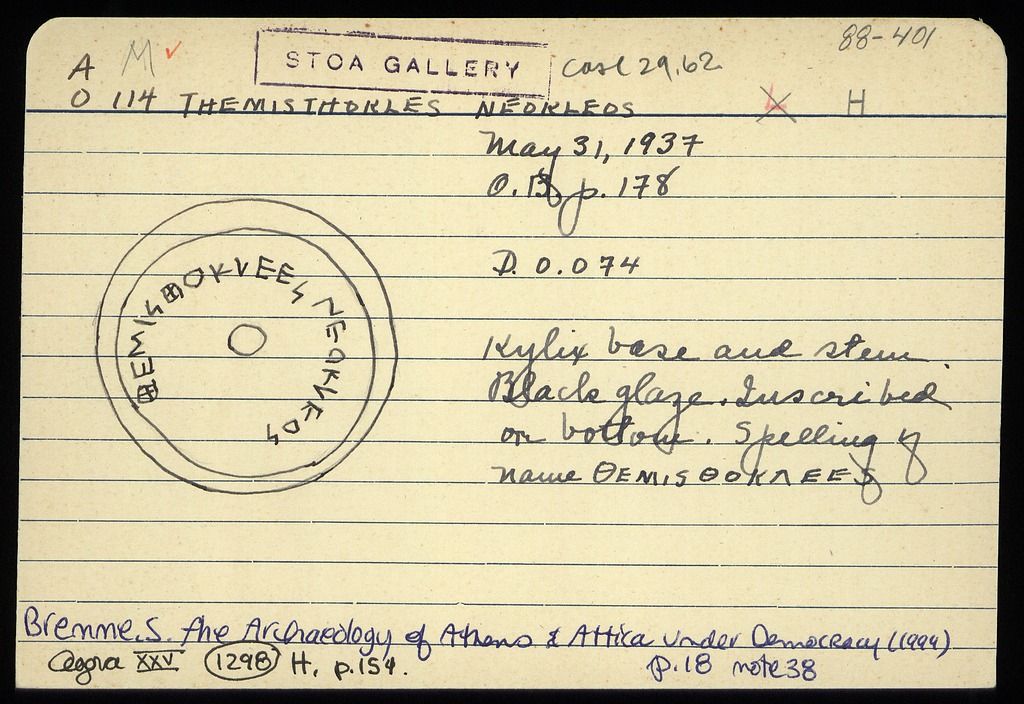 88-401
A M ✓ STOA GALLERY Case 29.62
O 114 THEMISTHOKLES NEOKLEOS L H
May 31, 1937
O.B. p. 178
D. 0.074
ⴲEMISⴲOKVEES NEOKVEOS
Kylix base and stem.
Black glaze. Inscribed
on bottom. Spelling of
name ΘEMISΘOKΛEES
Bremme, S. The Archaeology of Athens & Attica under Democracy (1994)
p.18 note 38
Agora XXV 1298 H, p.154.